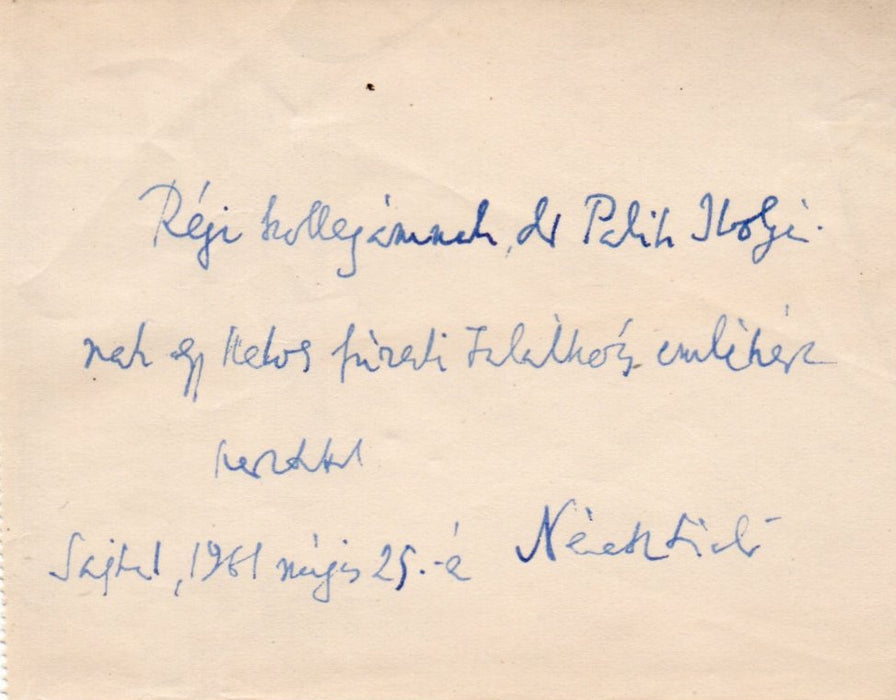 Régi kollegámnak, dr Palik Ibolyá-
nak egy kedves füredi találkozás emlékére
szeretettel
1961 május 25.-é
Németh László